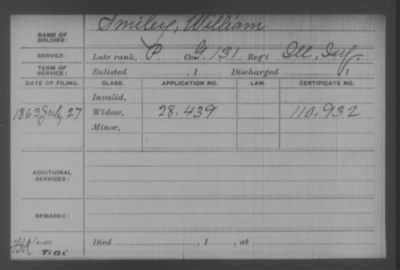 NAME OF SOLDIER: Smiley, William
SERVICE: Late rank, P. Co G. 131 Reg't Ill. Inf.
TERM OF SERVICE: Enlisted , 1 Discharged , 1
DATE OF FILING. CLASS. APPLICATION NO. LAW. CERTIFICATE NO.
Invalid,
1863 July 27 Widow, 28.439 110.932
Minor,
ADDITIONAL SERVICES:
REMARKS:
Died , 1 , at